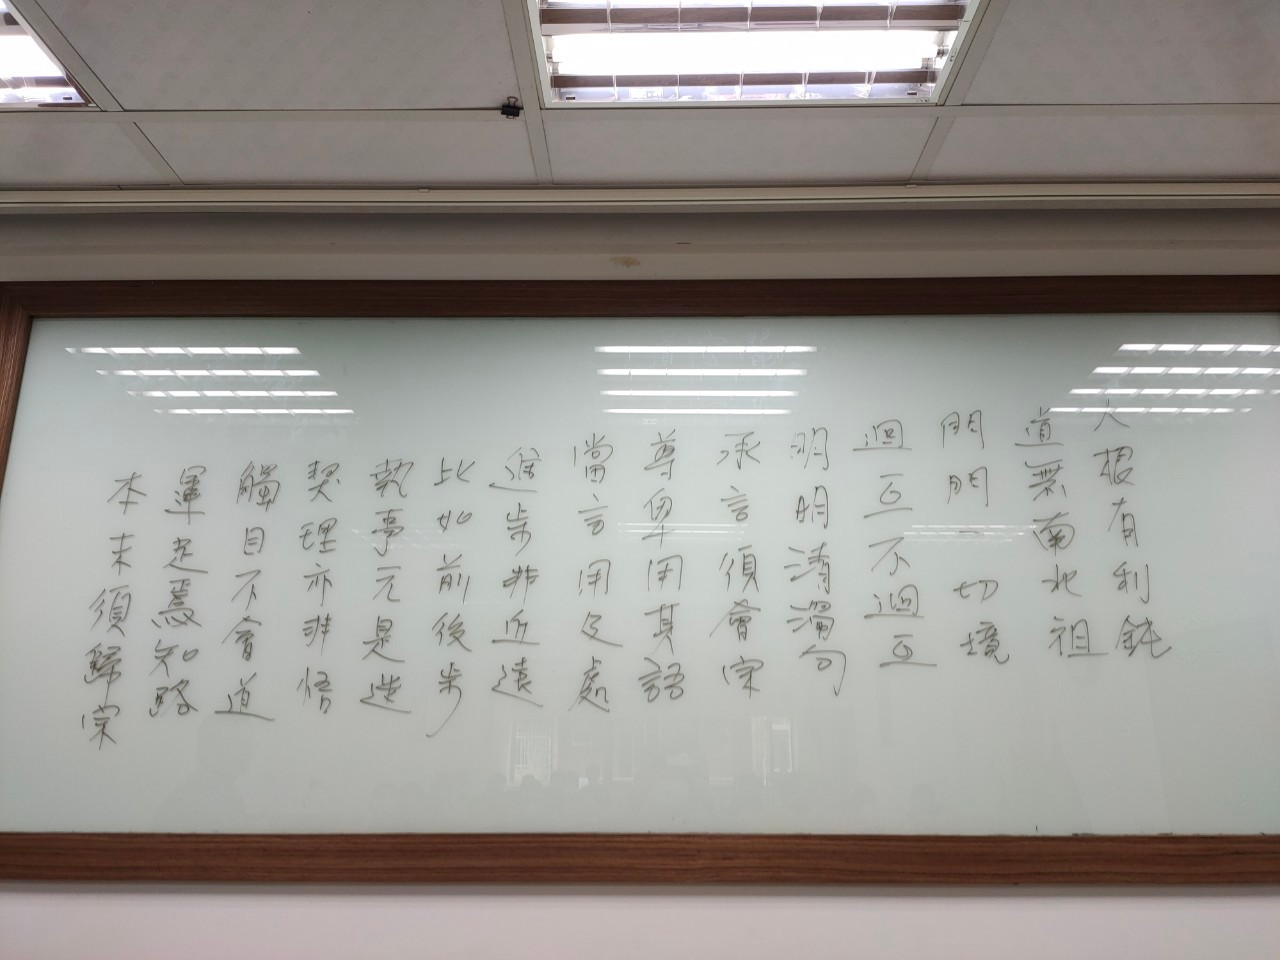 人根有利鈍
道無南北祖
門門一切境
迴互不迴互
明明清濁句
承言須會宗
尊卑用其語
當言用及處
進步非近遠
比如前後步
執事元是迷
契理亦非悟
觸目不會道
運足焉知路
本末須歸宗